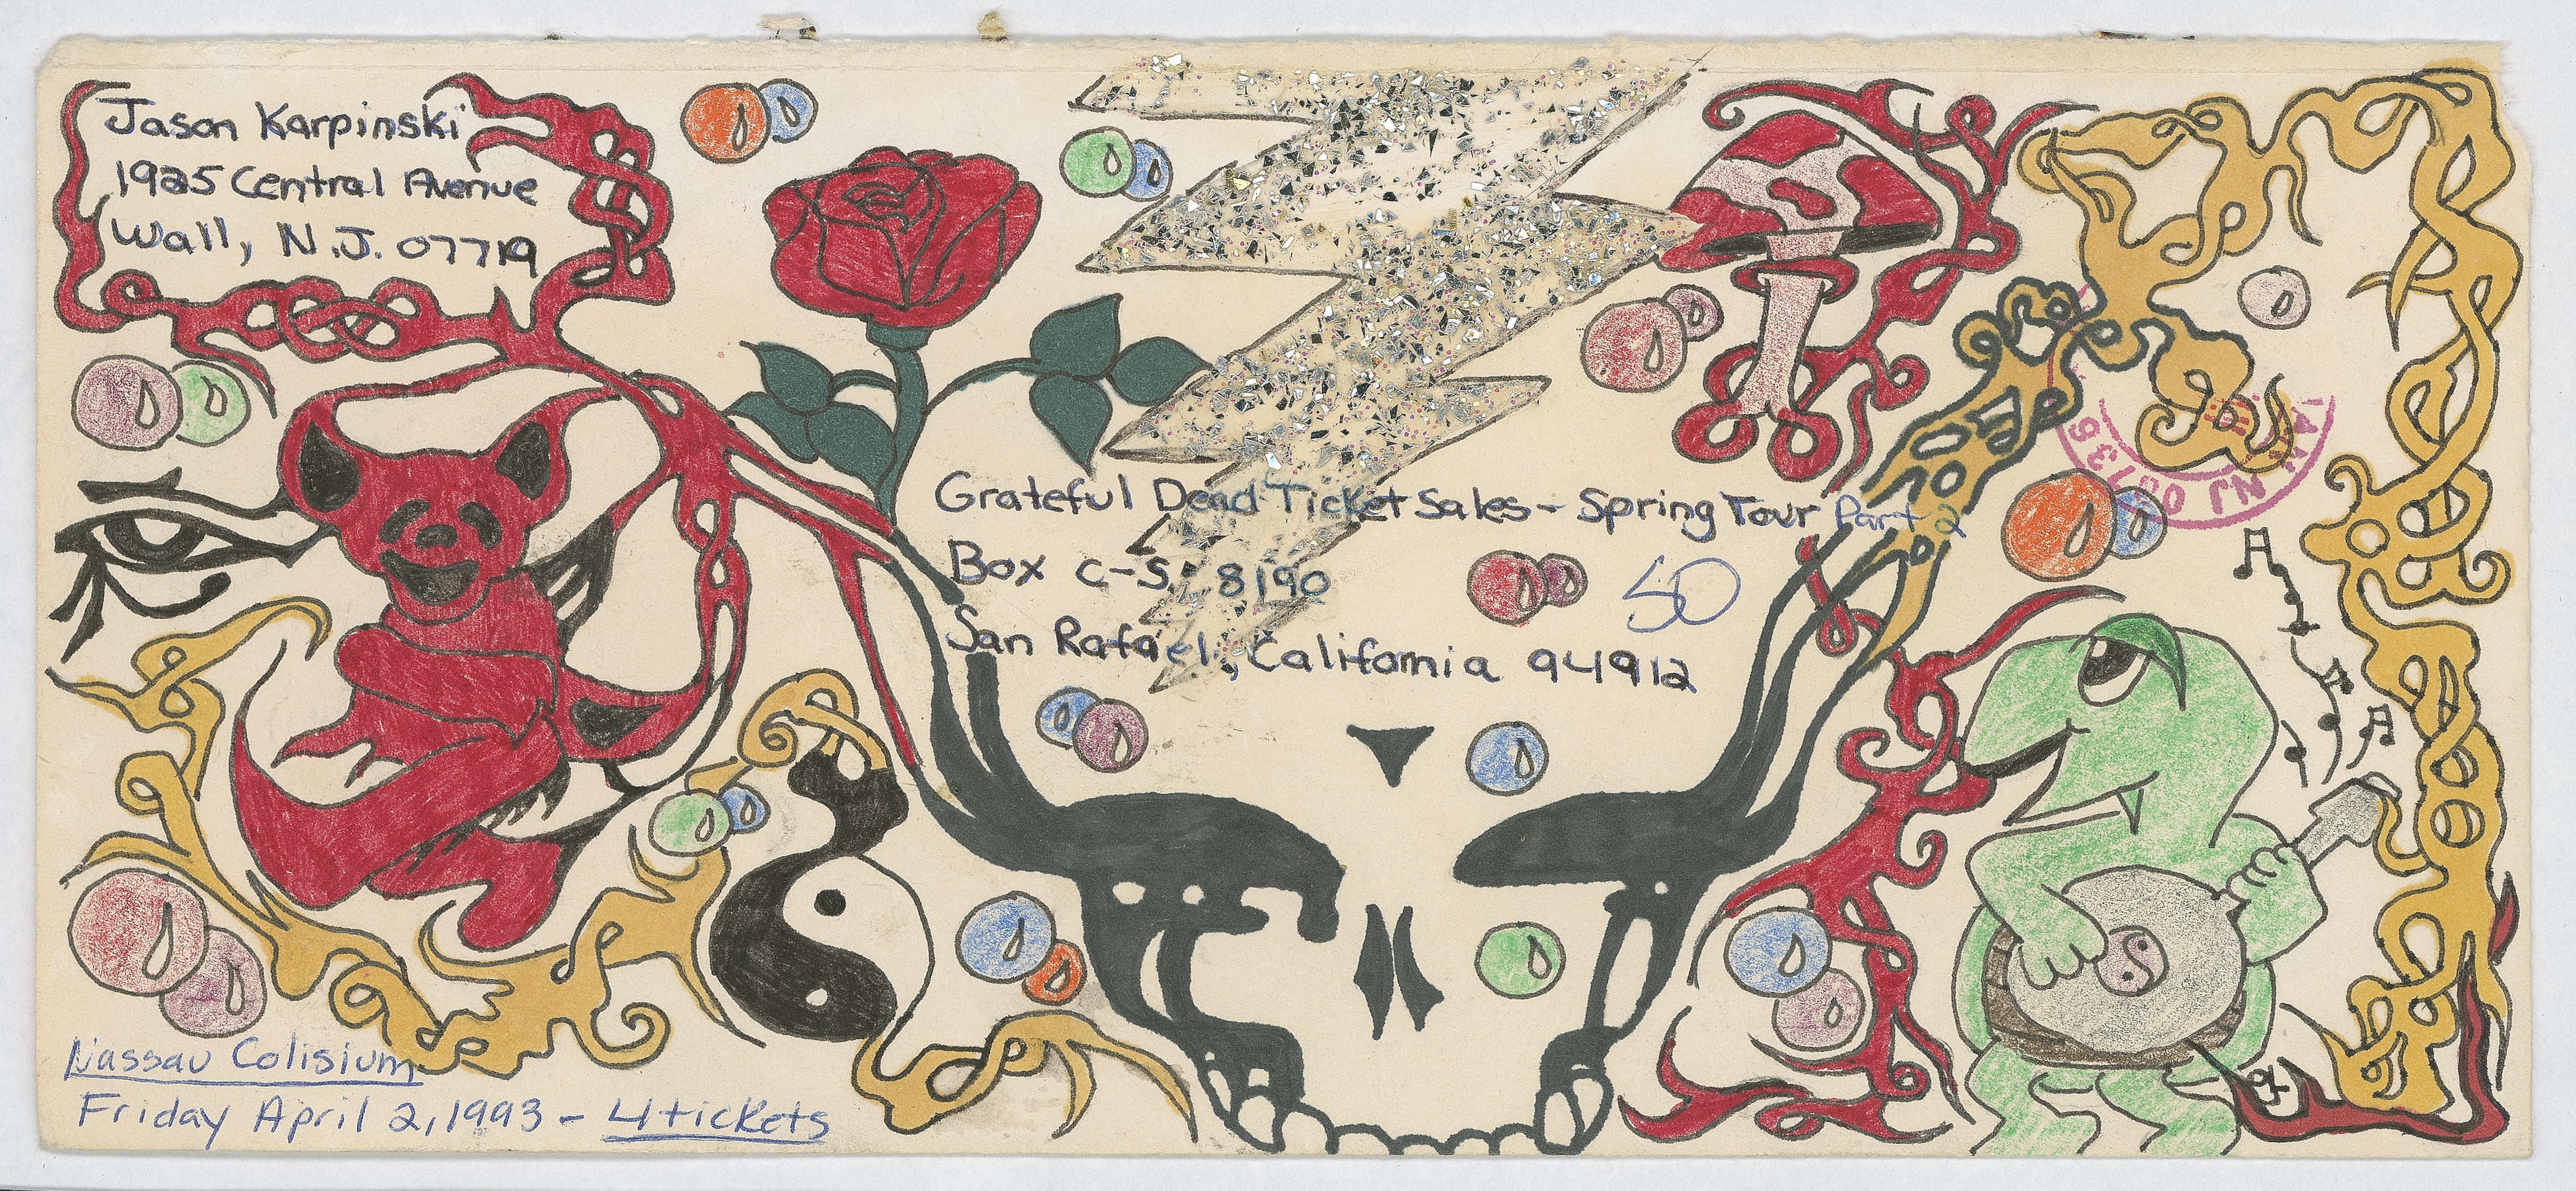 Jason Karpinski
1925 Central Avenue
Wall, N.J. 07719
Grateful Dead Ticket Sales - Spring Tour Part 2
Box C-S 8190
50
San Rafael, California 94912
NJ
Nassau Colisium
Friday April 2, 1993 - 4 tickets